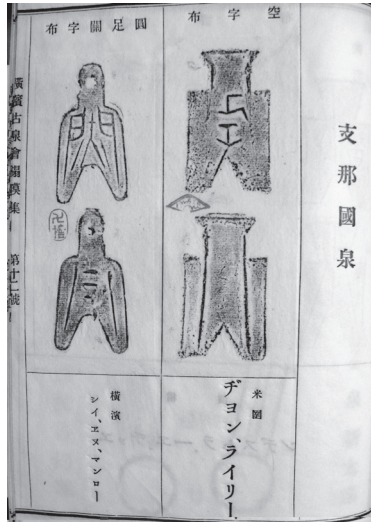 支那國泉
空字布
米國
ヂョン、ライリー
圓足關字布
横濱
シイ、ヱヌ、マンロー
横濱古泉會搨摸集
第十二號